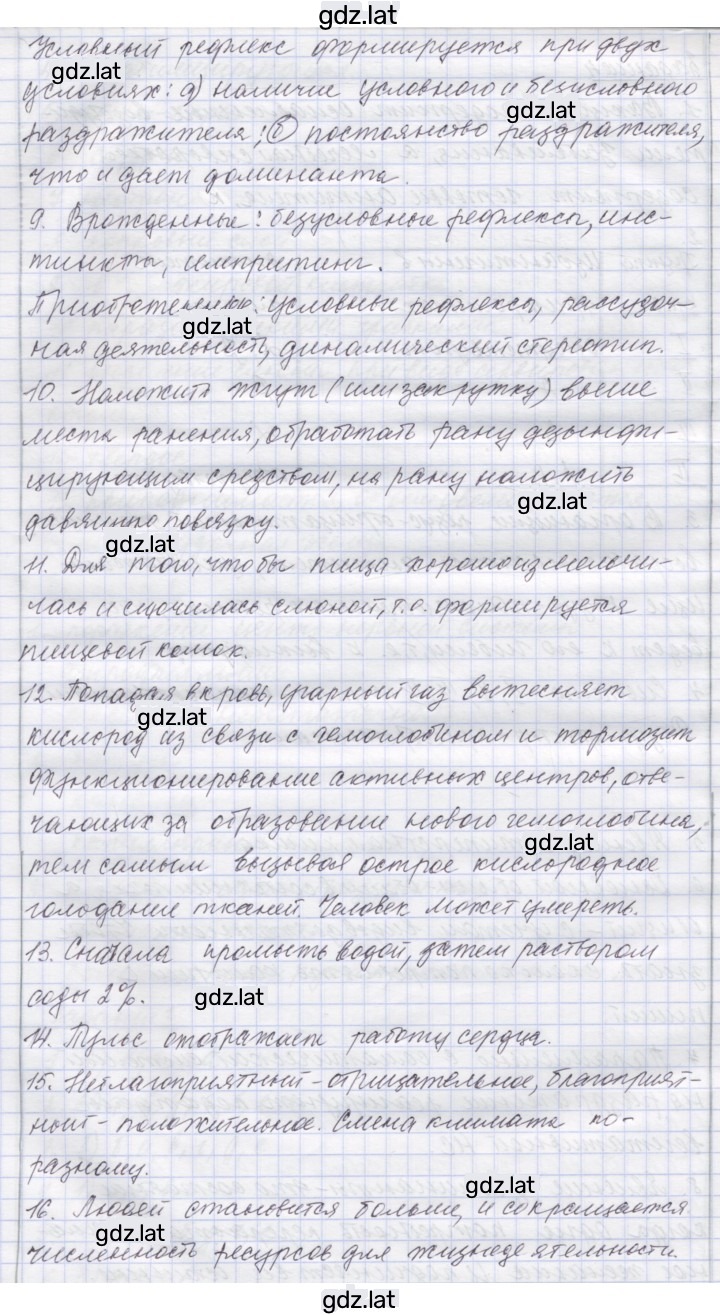 gdz.lat
Условный рефлекс формируется при двух
gdz.lat
условиях: а) наличие условного и безусловного
gdz.lat
раздражителя; б) постоянство раздражителя,
что и дает доминанта.
9. Врожденные: безусловные рефлексы, инс-
тинкты, импритинг.
Приобретенные: условные рефлексы, рассудоч-
gdz.lat
ная деятельность, динамический стереотип.
10. Наложить жгут (или закрутку) выше
места ранения, обработать рану дезынфи-
цирующим средством, на рану наложить
gdz.lat
давящую повязку.
gdz.lat
11. Для того, чтобы пища хорошо измельчи-
лась и смочилась слюной, т.о. формируется
пищевой комок.
12. Попадая в кровь, угарный газ вытесняет
gdz.lat
кислород из связи с гемоглобином и тормозит
функционирование активных центров, отве-
чающих за образование нового гемоглобина,
gdz.lat
тем самым вызывая острое кислородное
голодание тканей. Человек может умереть.
13. Сначала промыть водой, затем раствором
соды 2%.
gdz.lat
14. Пульс отображает работу сердца.
15. Неблагоприятный - отрицательное, благоприят-
ный - положительное. Смена климата по-
разному.
gdz.lat
16. Людей становится больше, и сокращается
gdz.lat
численность ресурсов для жизнедеятельности.
gdz.lat